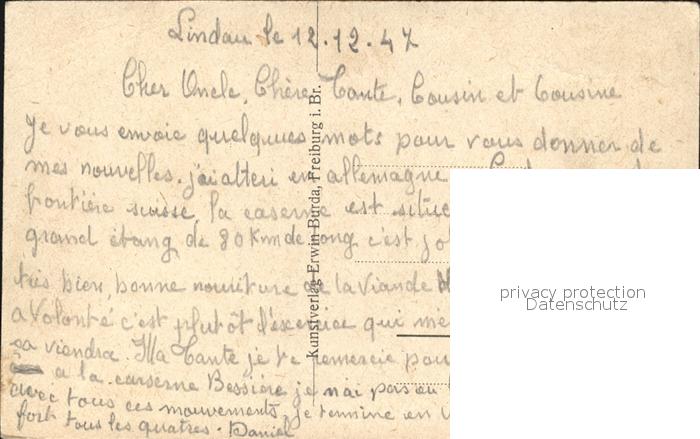 Lindau le 12.12.47
Cher Oncle, Chère Tante, Cousin et Cousine
Je vous envoie quelques mots pour vous donner de
mes nouvelles. j'ai atteri en allemagne
frontière suisse, la caserne est situé
grand étang de 80 Km de long c'est jo
très bien, bonne nourriture de la viande
a Volonté c'est plutôt l'exercice qui me
sa viendra. Ma Tante je te remercie pour
a la carserne Bessière je n'ai pas eu
avec tous ces mouvements, je termine en
fort tous les quatres. Daniel
Kunstverlag Erwin Burda, Freiburg i. Br.
privacy protection
Datenschutz